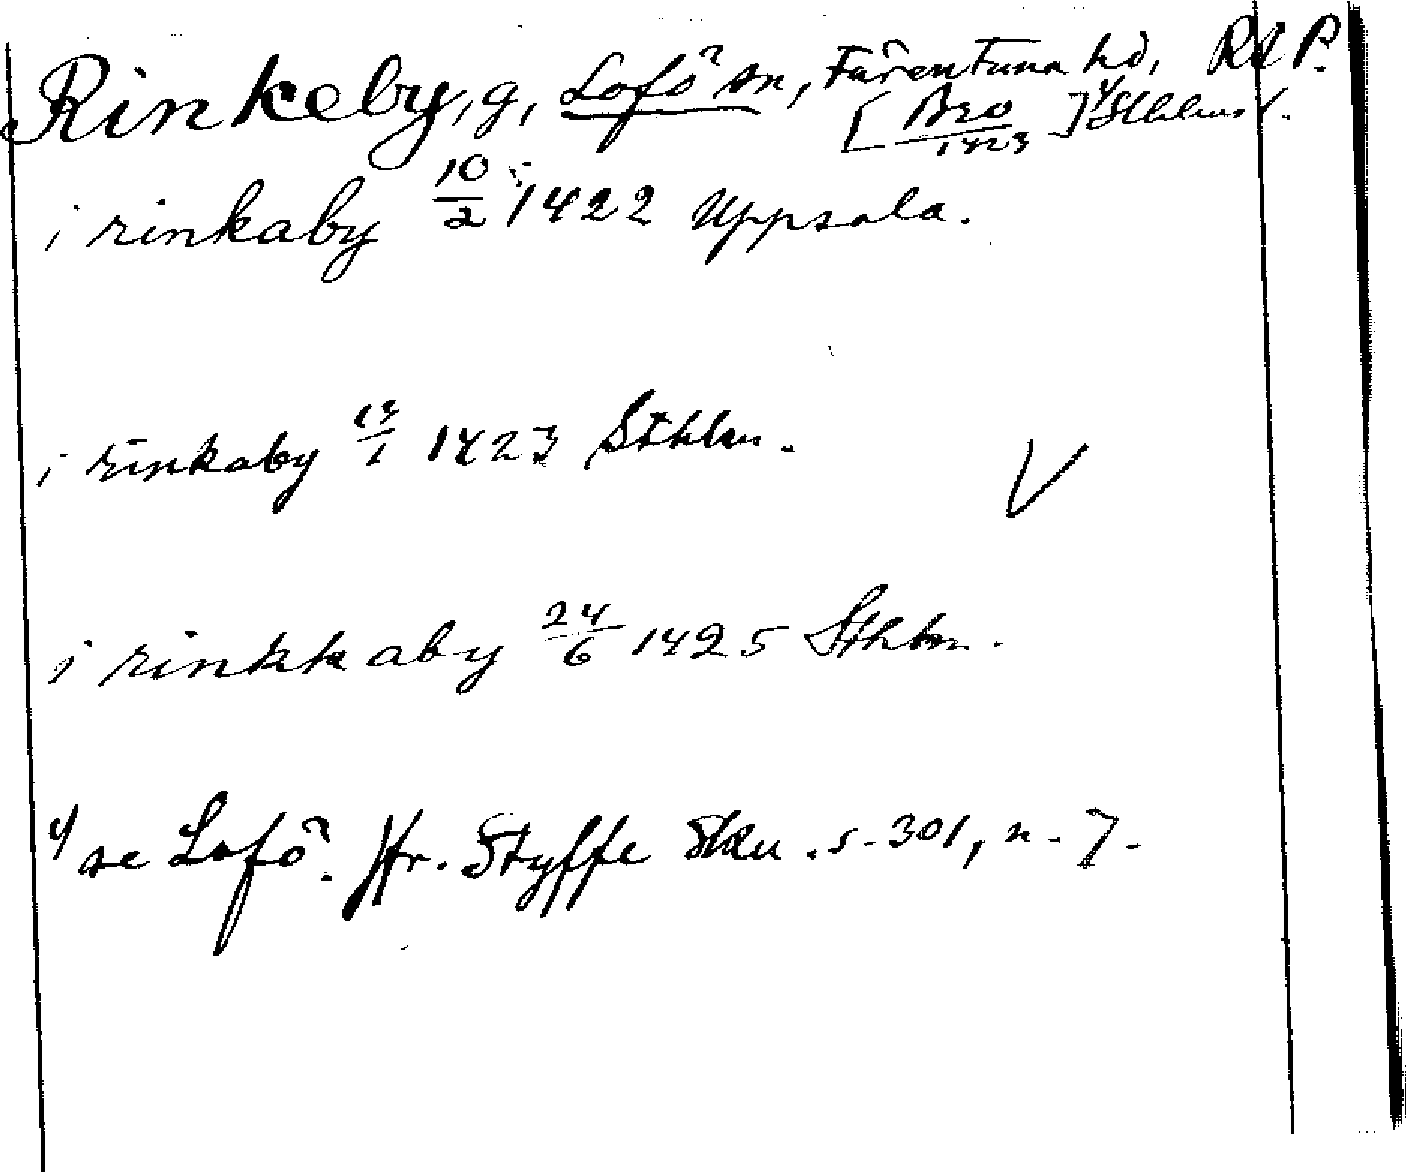 Rinkeby, g, Lofö sn, Färentuna hd, Rd P.
[Bro 1423] 1) Sthlms l.
i rinkaby 10/2 1422 Uppsala.
i rinkaby 13/1 1423 Sthlm.
V
i rinkkaby 24/6 1425 Sthlm.
1) se Lofö. Jfr. Styffe Sku. s. 301, n. 7.